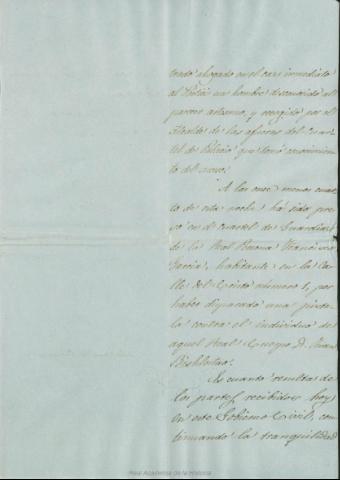 trado ahogado en el cais inmediato
al un hombre desconocido al
parecer artesano, y recogido por el
Alcalde de las afueras del Cuar-
tel de Palacio que tomó conocimien-
to del caso.
A las once menos cuar-
to de esta noche ha sido pre-
so en el cuartel de Guardias
de la Real Persona Francisco
Garcia, habitante en la Ca-
lle del Limón número 1, por
haber disparado una pisto-
la contra el individuo de
aquel Real Cuerpo D. Juan
Es cuanto resulta de
los partes recibidos hoy
en este Gobierno Civil, con-
tinuando la tranquilidad
Real Academia de la Historia